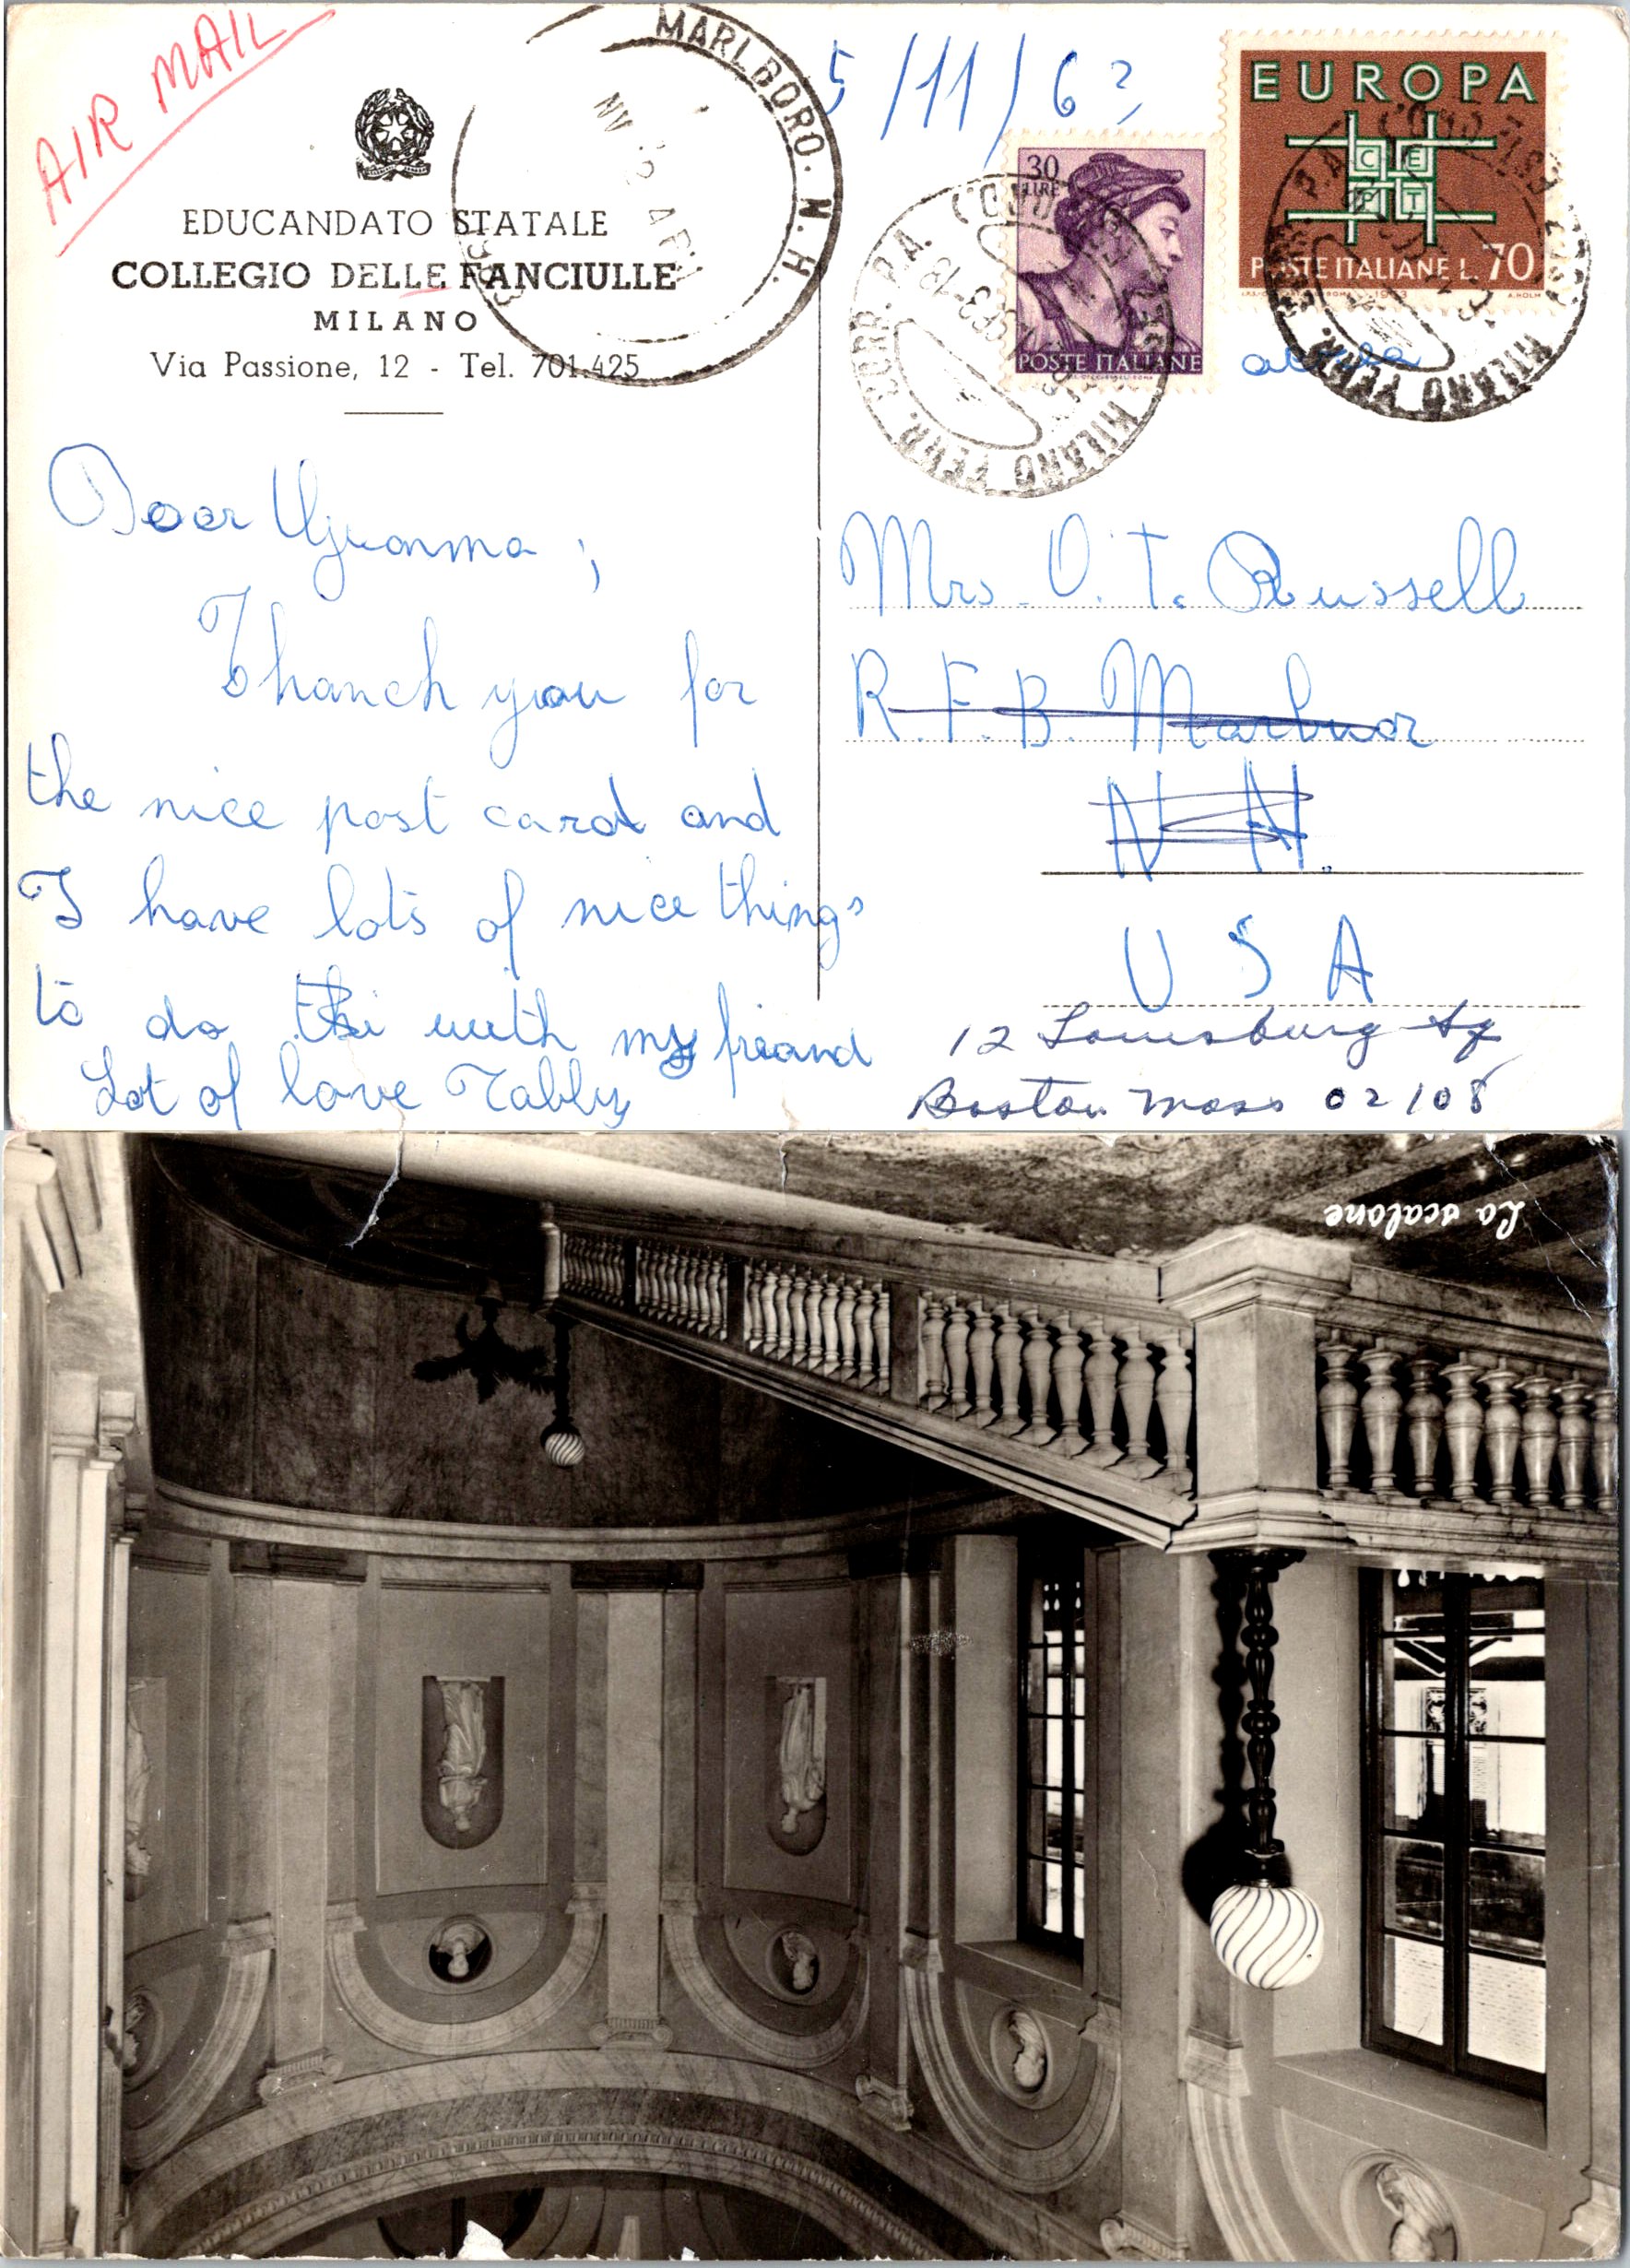 AIR MAIL
EDUCANDATO STATALE
COLLEGIO DELLE FANCIULLE
MILANO
Via Passione, 12 - Tel. 701.425
MARLBORO. N.H.
1963
5/11/63
30
LIRE
POSTE ITALIANE
EUROPA
CE
PT
POSTE ITALIANE L. 70
1963
A. HOLM
MILANO FERR. CORR. P.A.
MILANO FERR. CORR. P.A.
Dear
Thanch you for
the nice post card and
I have lots of nice things
to do with my friand
Lot of love Tabby
Mrs. O. T. Russell
R. F. B. Marlnor
N H.
U S A
12 Louisburg Sq
Boston Mass 02108
Lo scalone